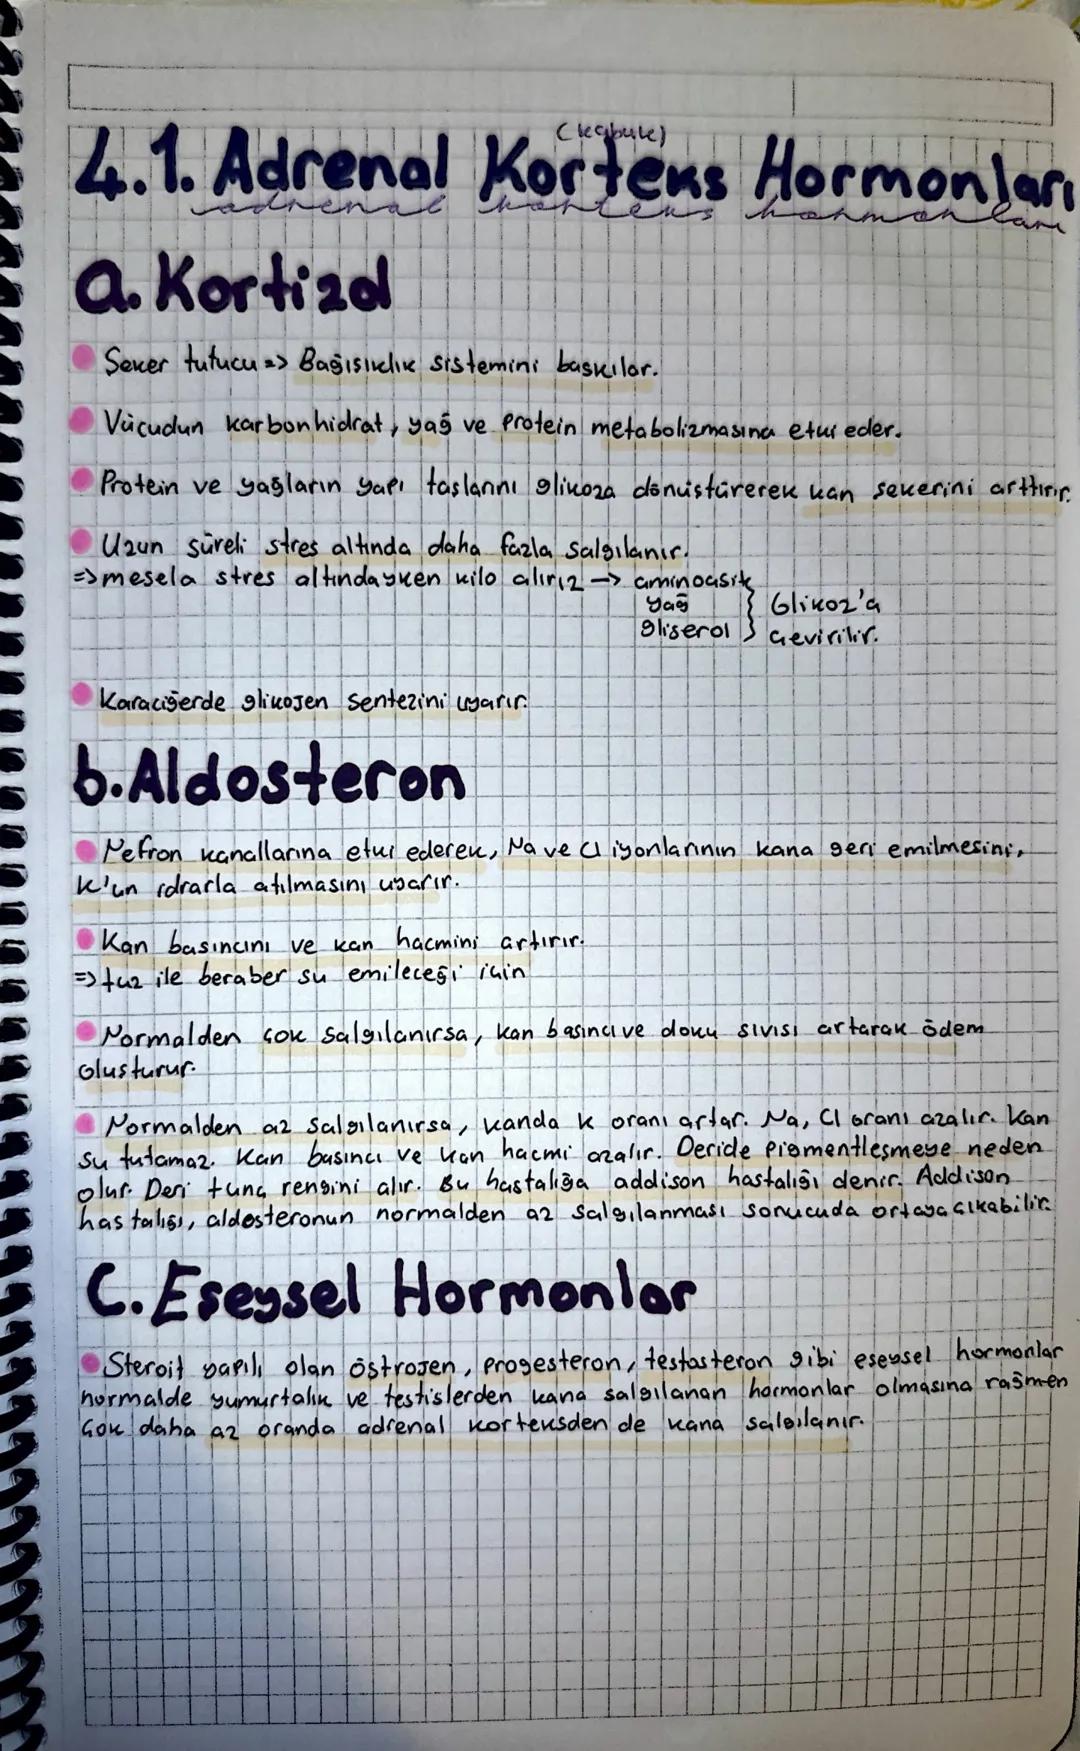 (kabuk)
4.1. Adrenal Korteks Hormonları
adrenal korteks hormonları
a. Kortizol
Şeker tutucu => Bağışıklık sistemini baskılar.
Vücudun karbonhidrat, yağ ve protein metabolizmasına etki eder.
Protein ve yağların yapı taşlarını glikoza dönüştürerek kan şekerini arttırır.
Uzun süreli stres altında daha fazla salgılanır.
=> mesela stres altındayken kilo alırız → aminoasit
yağ } Glikoz'a
gliserol } çevirilir.
Karaciğerde glikojen sentezini uyarır.
b. Aldosteron
Nefron kanallarına etki ederek, Na ve Cl iyonlarının kana geri emilmesini,
K'un idrarla atılmasını uyarır.
Kan basıncını ve kan hacmini artırır.
=> tuz ile beraber su emileceği için
Normalden çok salgılanırsa, kan basıncı ve doku sıvısı artarak ödem
oluşturur.
Normalden az salgılanırsa, kanda K oranı artar. Na, Cl oranı azalır. Kan
su tutamaz. Kan basıncı ve kan hacmi azalır. Deride pigmentleşmeye neden
olur. Deri tunç rengini alır. Bu hastalığa addison hastalığı denir. Addison
hastalığı, aldosteronun normalden az salgılanması sonucuda ortaya çıkabilir.
C. Eşeysel Hormonlar
Steroit yapılı olan östrojen, progesteron, testosteron gibi eşeysel hormonlar
normalde yumurtalık ve testislerden kana salgılanan hormonlar olmasına rağmen
çok daha az oranda adrenal korteksden de kana salgılanır.